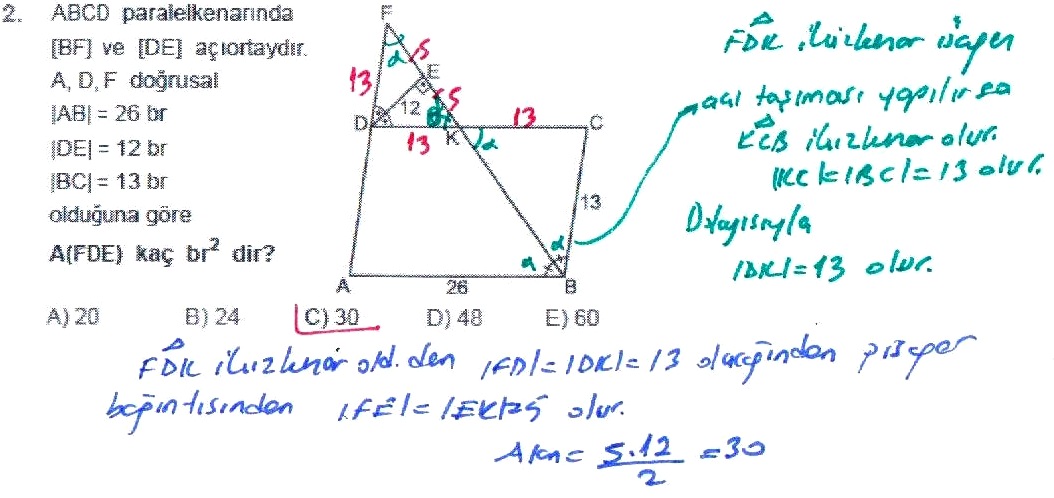 2. ABCD paralelkenarında
[BF] ve [DE] açıortaydır.
A, D, F doğrusal
|AB| = 26 br
|DE| = 12 br
|BC| = 13 br
olduğuna göre
A(FDE) kaç br² dir?
F
α
5
13
E
5
12
α
D
13
K
α
13
C
13
α
α
A
26
B
FDK ikizkenar üçgen
açı taşıması yapılırsa
KCB ikizkenar olur.
|KC|=|BC|=13 olur.
Dolayısıyla
|DK|=13 olur.
A) 20 B) 24 C) 30 D) 48 E) 60
FDK ikizkenar old. den |FD|=|DK|=13 olacağından pisagor
bağıntısından |FE|=|EK|=5 olur.
Alan= 5.12/2 =30